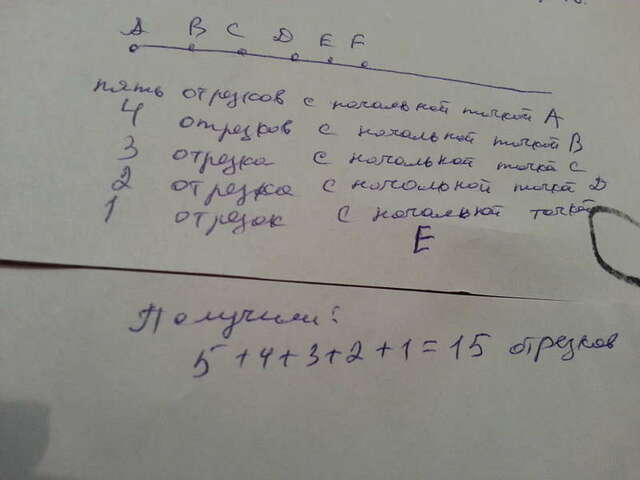 A B C D E F
пять отрезков с начальной точкой A
4 отрезков с начальной точкой B
3 отрезка с начальной точка C
2 отрезка с начальной точка D
1 отрезок с начальной точкой
E
Получим:
5+4+3+2+1=15 отрезков